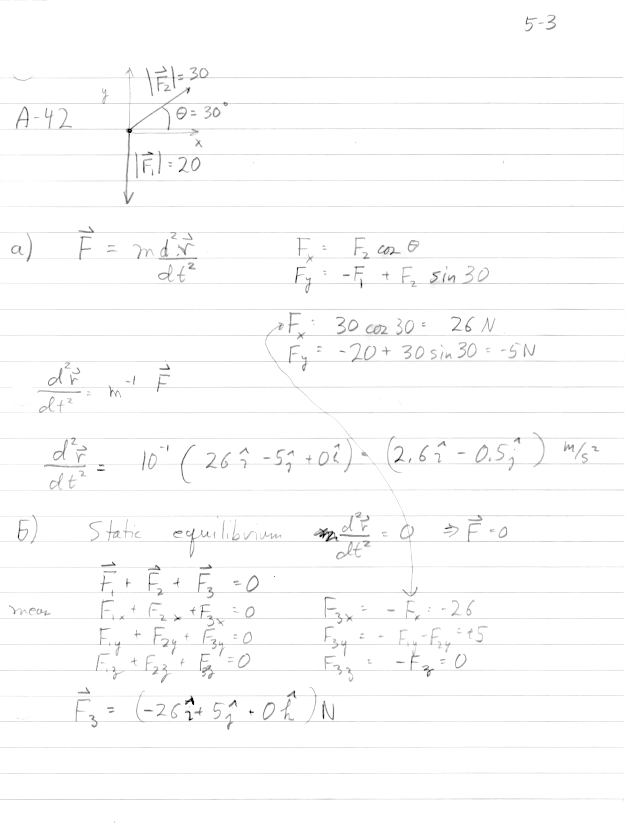 5-3
|F⃗₂| = 30
y
θ = 30°
A-42
x
|F⃗₁| = 20
a) F⃗ = m d²r⃗/dt² Fₓ = F₂ cos θ
F_y = -F₁ + F₂ sin 30
Fₓ = 30 cos 30 = 26 N
F_y = -20 + 30 sin 30 = -5 N
d²r⃗/dt² = m⁻¹ F⃗
d²r⃗/dt² = 10⁻¹ ( 26 î - 5 ĵ + 0 k̂ ) = ( 2.6 î - 0.5 ĵ ) m/s²
б) Static equilibrium d²r⃗/dt² = 0 ⇒ F⃗ = 0
F⃗₁ + F⃗₂ + F⃗₃ = 0
means F₁ₓ + F₂ₓ + F₃ₓ = 0 F₃ₓ = - Fₓ = -26
F₁y + F₂y + F₃y = 0 F₃y = - F₁y - F₂y = +5
F₁z + F₂z + F₃z = 0 F₃z = - F_z = 0
F⃗₃ = ( -26 î + 5 ĵ + 0 k̂ ) N